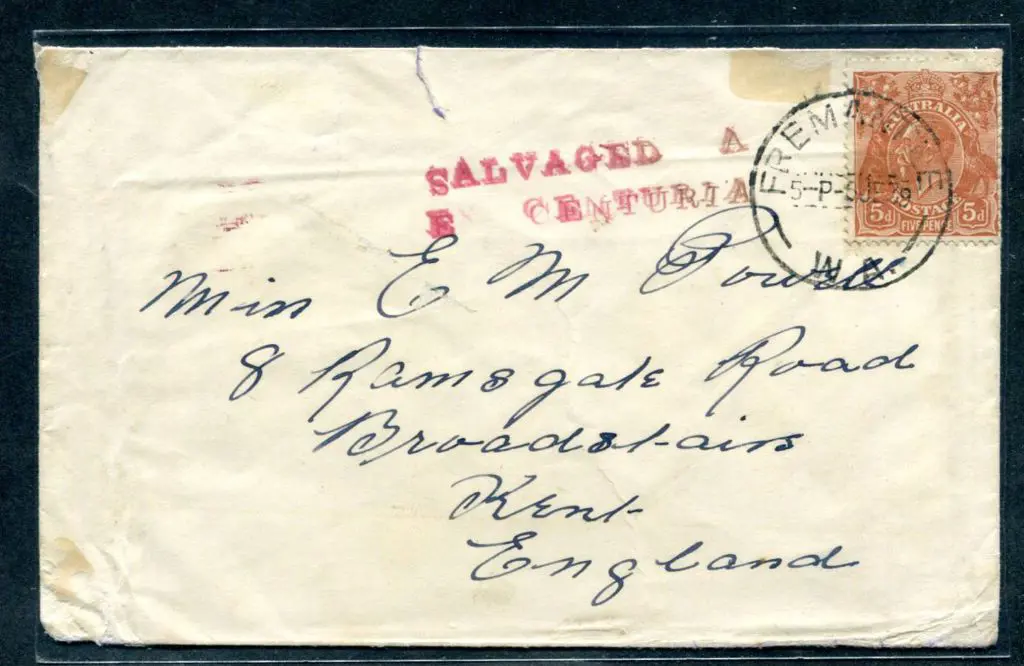 SALVAGED A
E CENTURIA
FREMANTLE
5-P-5JE38
W.A.
AUSTRALIA
5d POSTAGE 5d
FIVE PENCE
Miss E M Powell
8 Ramsgate Road
Broadstairs
Kent
England